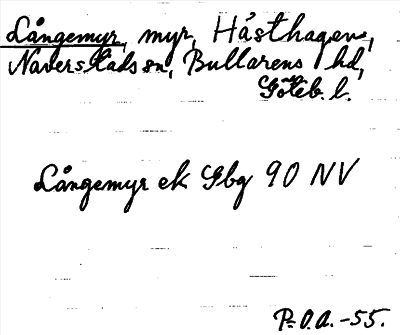 Långemyr, myr, Hästhagen,
Naverstads sn, Bullarens hd,
Göteb. l.
Långemyr ek Gbg 90 NV
P.O.A. -55.